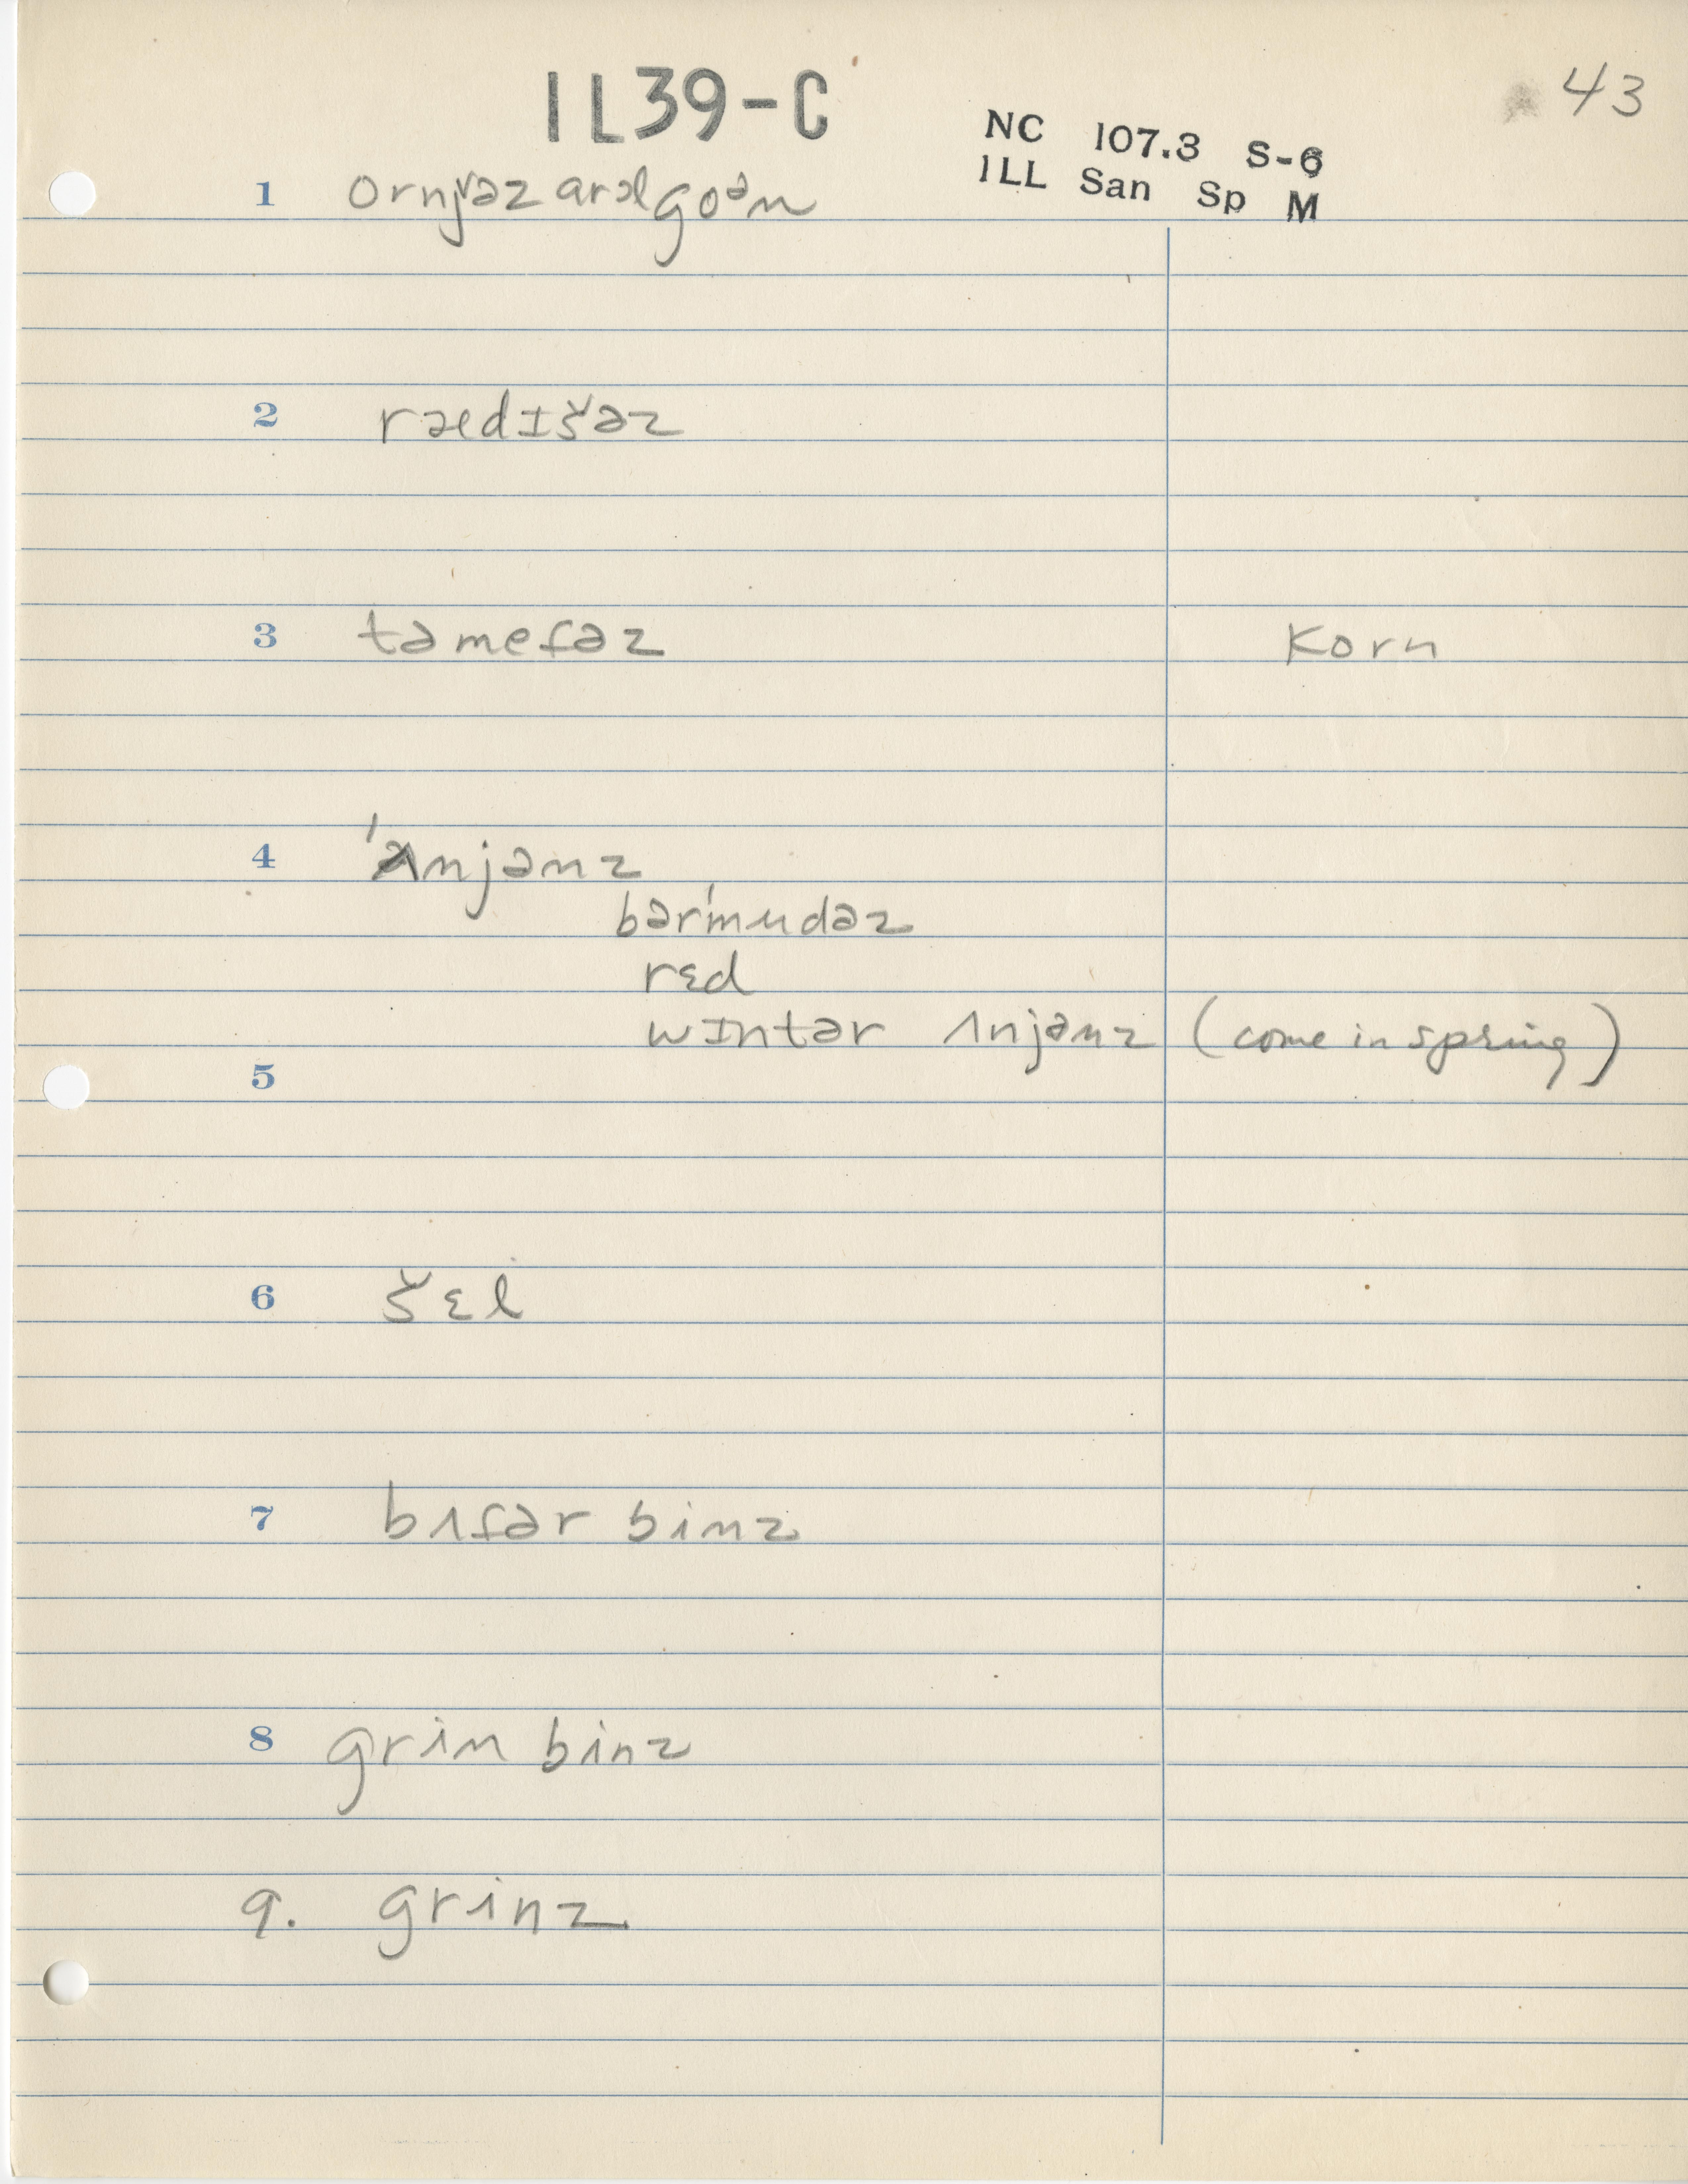 IL39-C
43
NC 107.3 S-6
ILL San Sp M
1 ornǰəz ar ɔl goᵊn
2 rædɪšəz
3 təmeɾəz korn
4 ˈʌnjənz
bərˈmudəz
rɛd
wɪntər ʌnjənz (come in spring)
5
6 šɛl
7 bʌɾər binz
8 grin binz
9. grinz